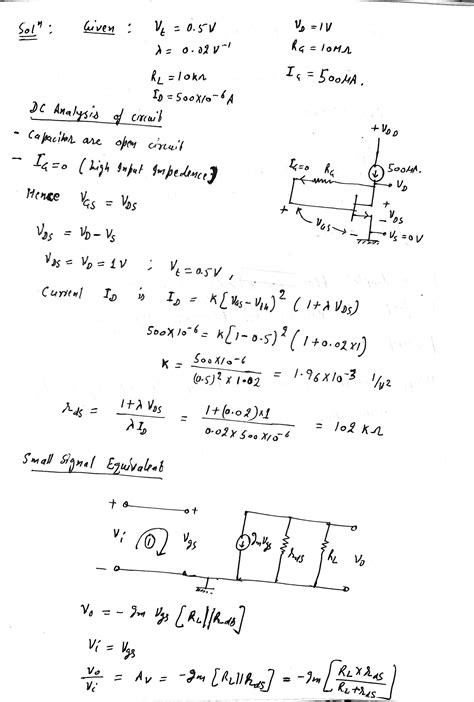 Solⁿ : Given : Vt = 0.5V VD = 1V
λ = 0.02 V⁻¹ RG = 10MΩ
RL = 10kΩ IG = 500µA.
ID = 500×10⁻⁶ A
DC Analysis of circuit
- Capacitor are open circuit
- IG = 0 (high Input Impedence)
Hence VGS = VDS
VDS = VD - VS
VDS = VD = 1V ; Vt = 0.5V,
+VDD
500µA.
IG=0 RG
VD
+
+ VDS
VGS -
- VS = 0V
Current ID is ID = K[VGS - Vth]² (1 + λ VDS)
500×10⁻⁶ = K[1 - 0.5]² (1 + 0.02×1)
K = 500×10⁻⁶ / (0.5)² × 1.02 = 1.96×10⁻³ 1/V²
rds = 1 + λ VDS / λ ID = 1 + (0.02)×1 / 0.02 × 500×10⁻⁶ = 102 KΩ
Small Signal Equivalent
+ +
Vi 1 Vgs gmVgs rds RL Vo
-
Vo = - gm Vgs [RL || rds]
Vi = Vgs
Vo / Vi = Av = - gm [RL || rds] = - gm [RL × rds / RL + rds]